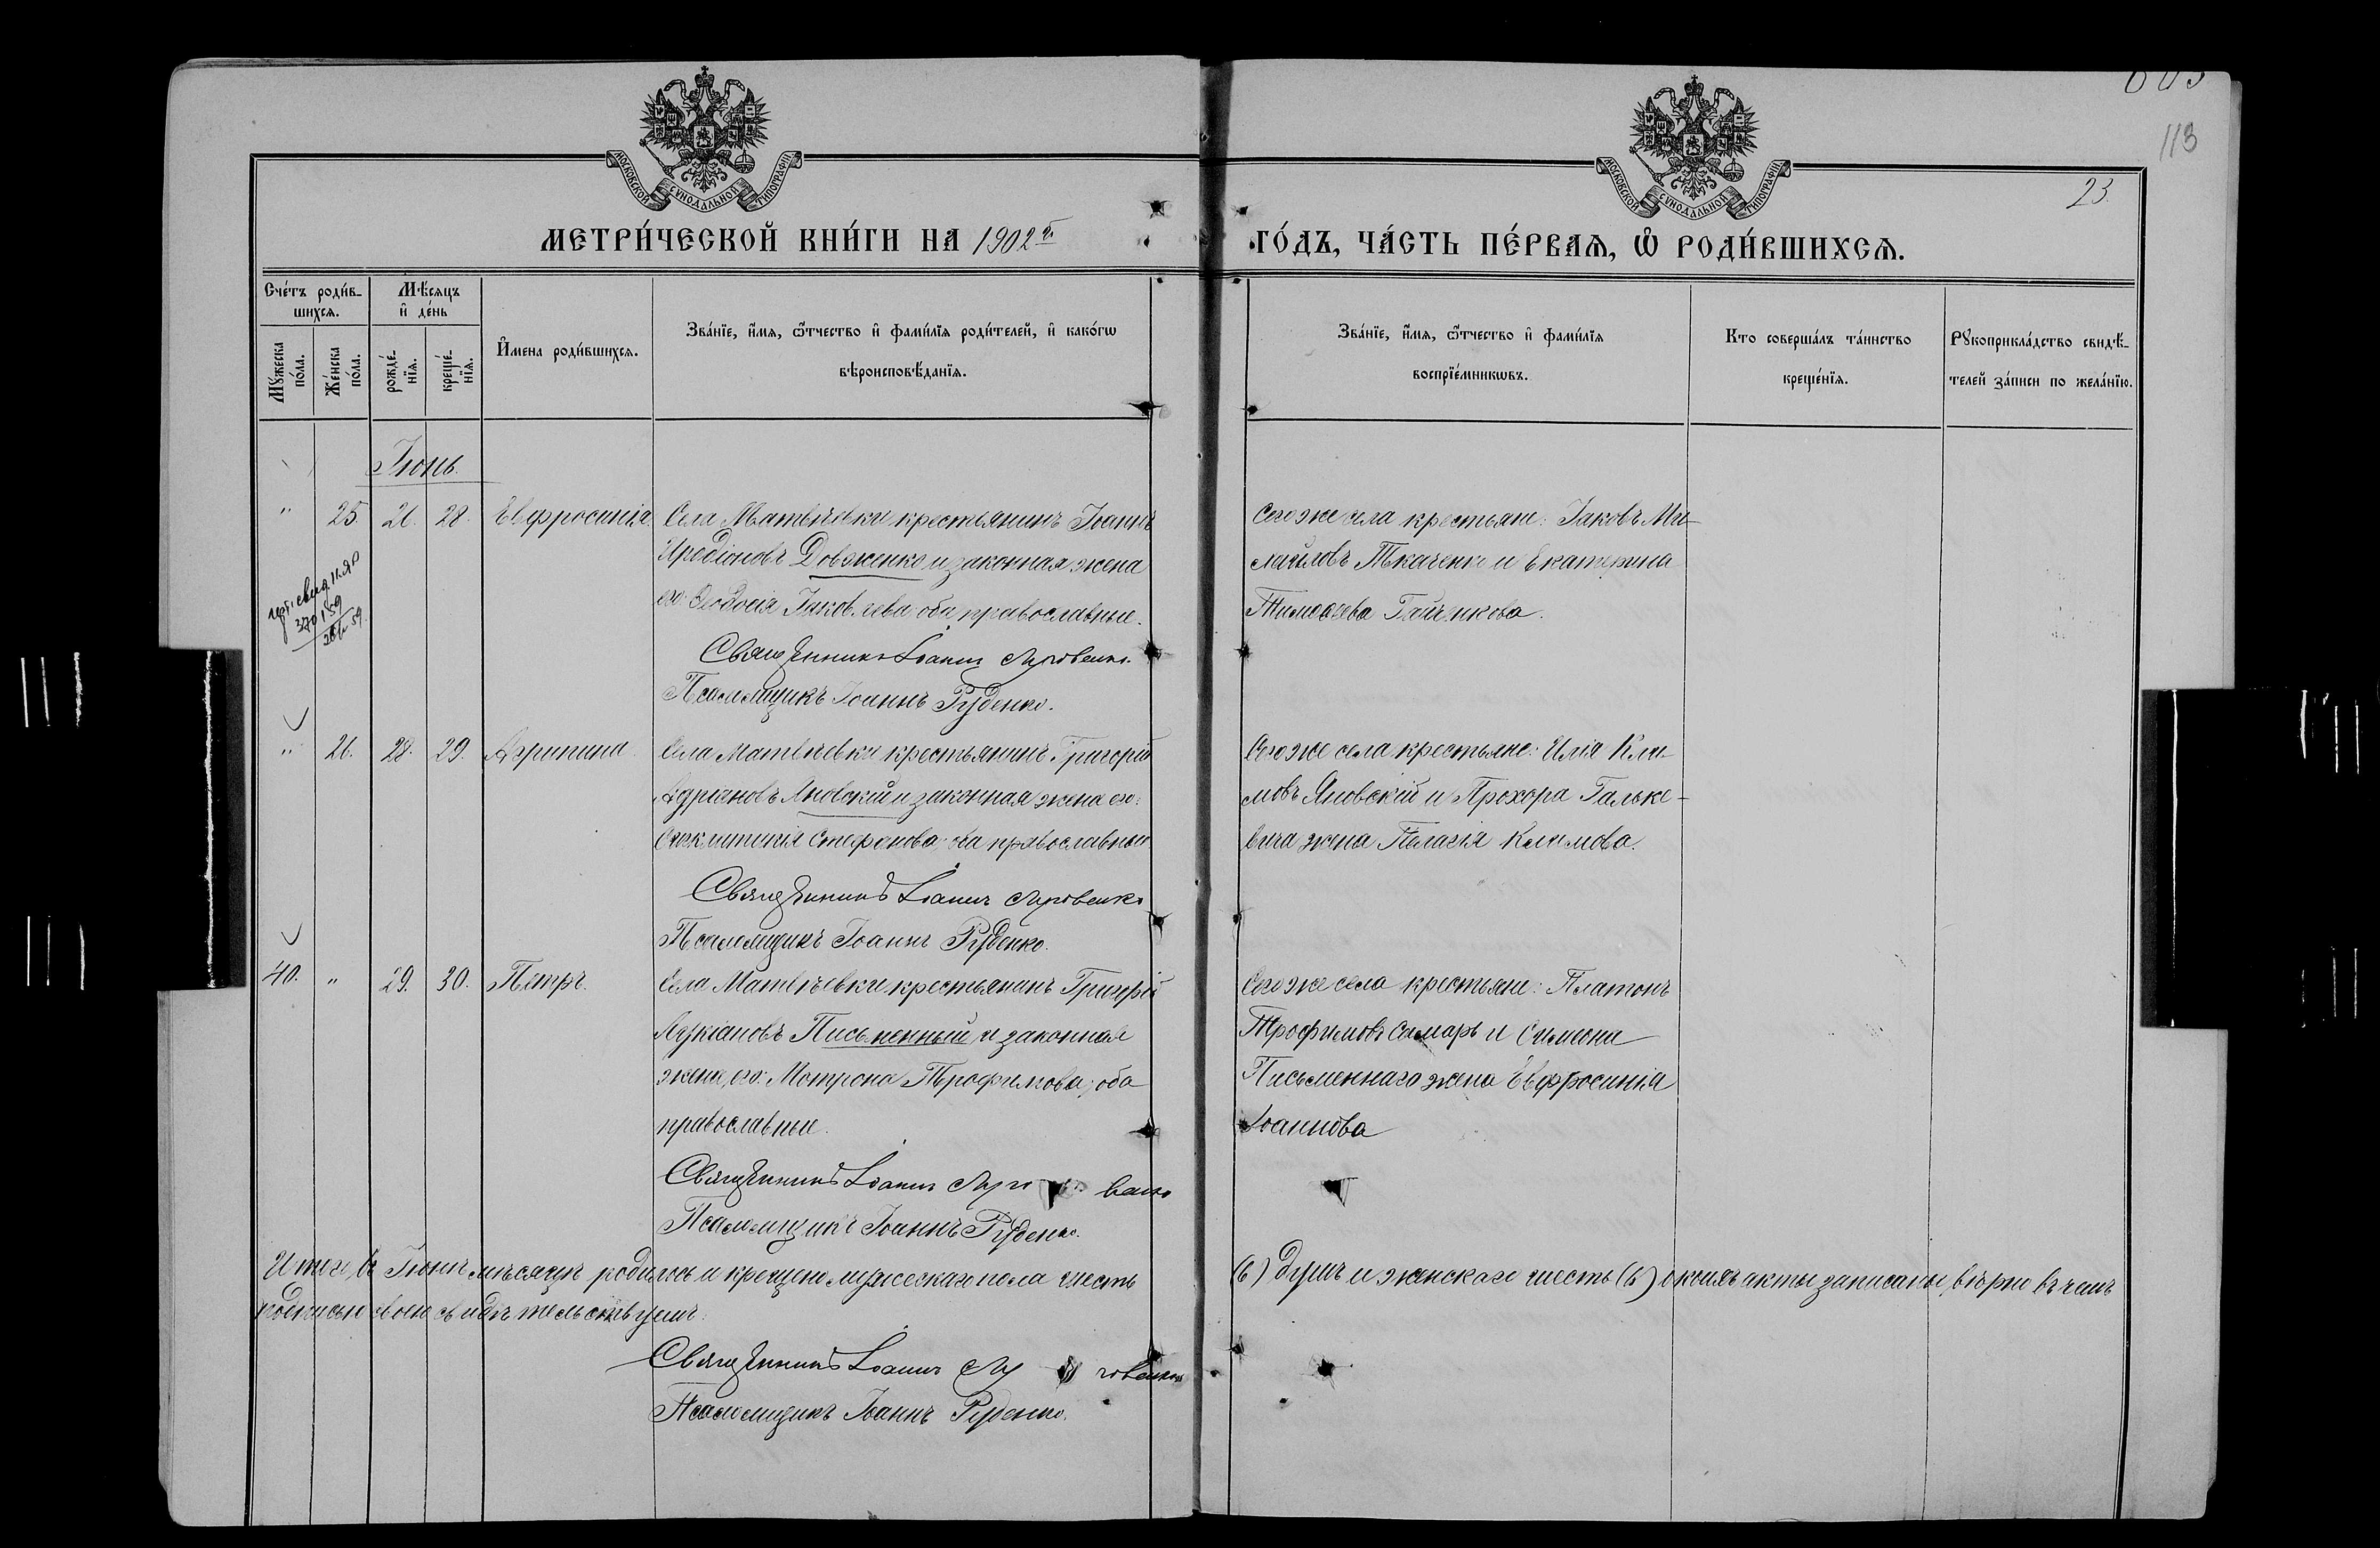 МОСКОВСКОЙ СѴНОДАЛЬНОЙ ТИПОГРАФІИ
МОСКОВСКОЙ СѴНОДАЛЬНОЙ ТИПОГРАФІИ
113
23
МЕТРИ́ЧЕСКОЙ КНИ́ГИ НА 1902й
ГО́ДЪ, ЧА́СТЬ ПЕ́РВАѦ, Ѡ҆ РОДИ́ВШИХСѦ.
Сче́тъ роди́в-
шихсѧ.
Мѣ́сяцъ
и҆ де́нь
Мꙋ́жеска по́ла.
Же́нска по́ла.
рожде́-
нїѧ.
креще́-
нїѧ.
И҆мена роди́вшихсѧ.
Зва́нїе, и҆́мѧ, ѻ҆́тчество и҆ фами́лїѧ роди́телей, и҆ како́гѡ
вѣроисповѣ́данїѧ.
Зва́нїе, и҆́мѧ, ѻ҆́тчество и҆ фами́лїѧ
воспрїе́мникѡвъ.
Кто соверша́лъ та́инство
креще́нїѧ.
Рꙋкоприкла́дство свидѣ́-
телей за́писи по жела́нїю.
Іюнь.
" 25. 26. 28. Евфросинія. Села Матвѣевки крестьянинъ Іоаннъ
Иродіоновъ Довженко и законная жена
его Ѳеодосія Іаковлева оба православные.
Священникъ Іоаннъ
Псаломщикъ Іоаннъ Руденко.
Того же села крестьяне: Іаковъ Ми-
хайловъ Ткаченко и Екатерина
Тимоѳеева
" 26. 28. 29. Агрипина Села Матвѣевки крестьянинъ Григорій
Адріановъ Яновскій и законная жена его:
Стефанова оба православные
Священникъ Іоаннъ
Псаломщикъ Іоаннъ Руденко.
Того же села крестьяне: Илія Кли-
мовъ Яновскій и Прохора Гальке-
вича жена Пелагія Климова.
40. " 29. 30. Петръ. Села Матвѣевки крестьянинъ Григорій
Лукіановъ Письменный и законная
жена его: Мотрона Трофимова, оба
православные.
Священникъ Іоаннъ
Псаломщикъ Іоаннъ Руденко.
Того же села крестьяне: Платонъ
Трофимовъ Самарь и Симеона
Письменнаго жена Евфросинія
Іоаннова
Итого въ Іюнѣ мѣсяцѣ родилось и крещено мужескаго пола шесть (6) душъ и женскаго шесть (6) о коихъ акты записаны вѣрно въ чемъ
подписью своею свидѣтельствуемъ:
Священникъ Іоаннъ
Псаломщикъ Іоаннъ Руденко.